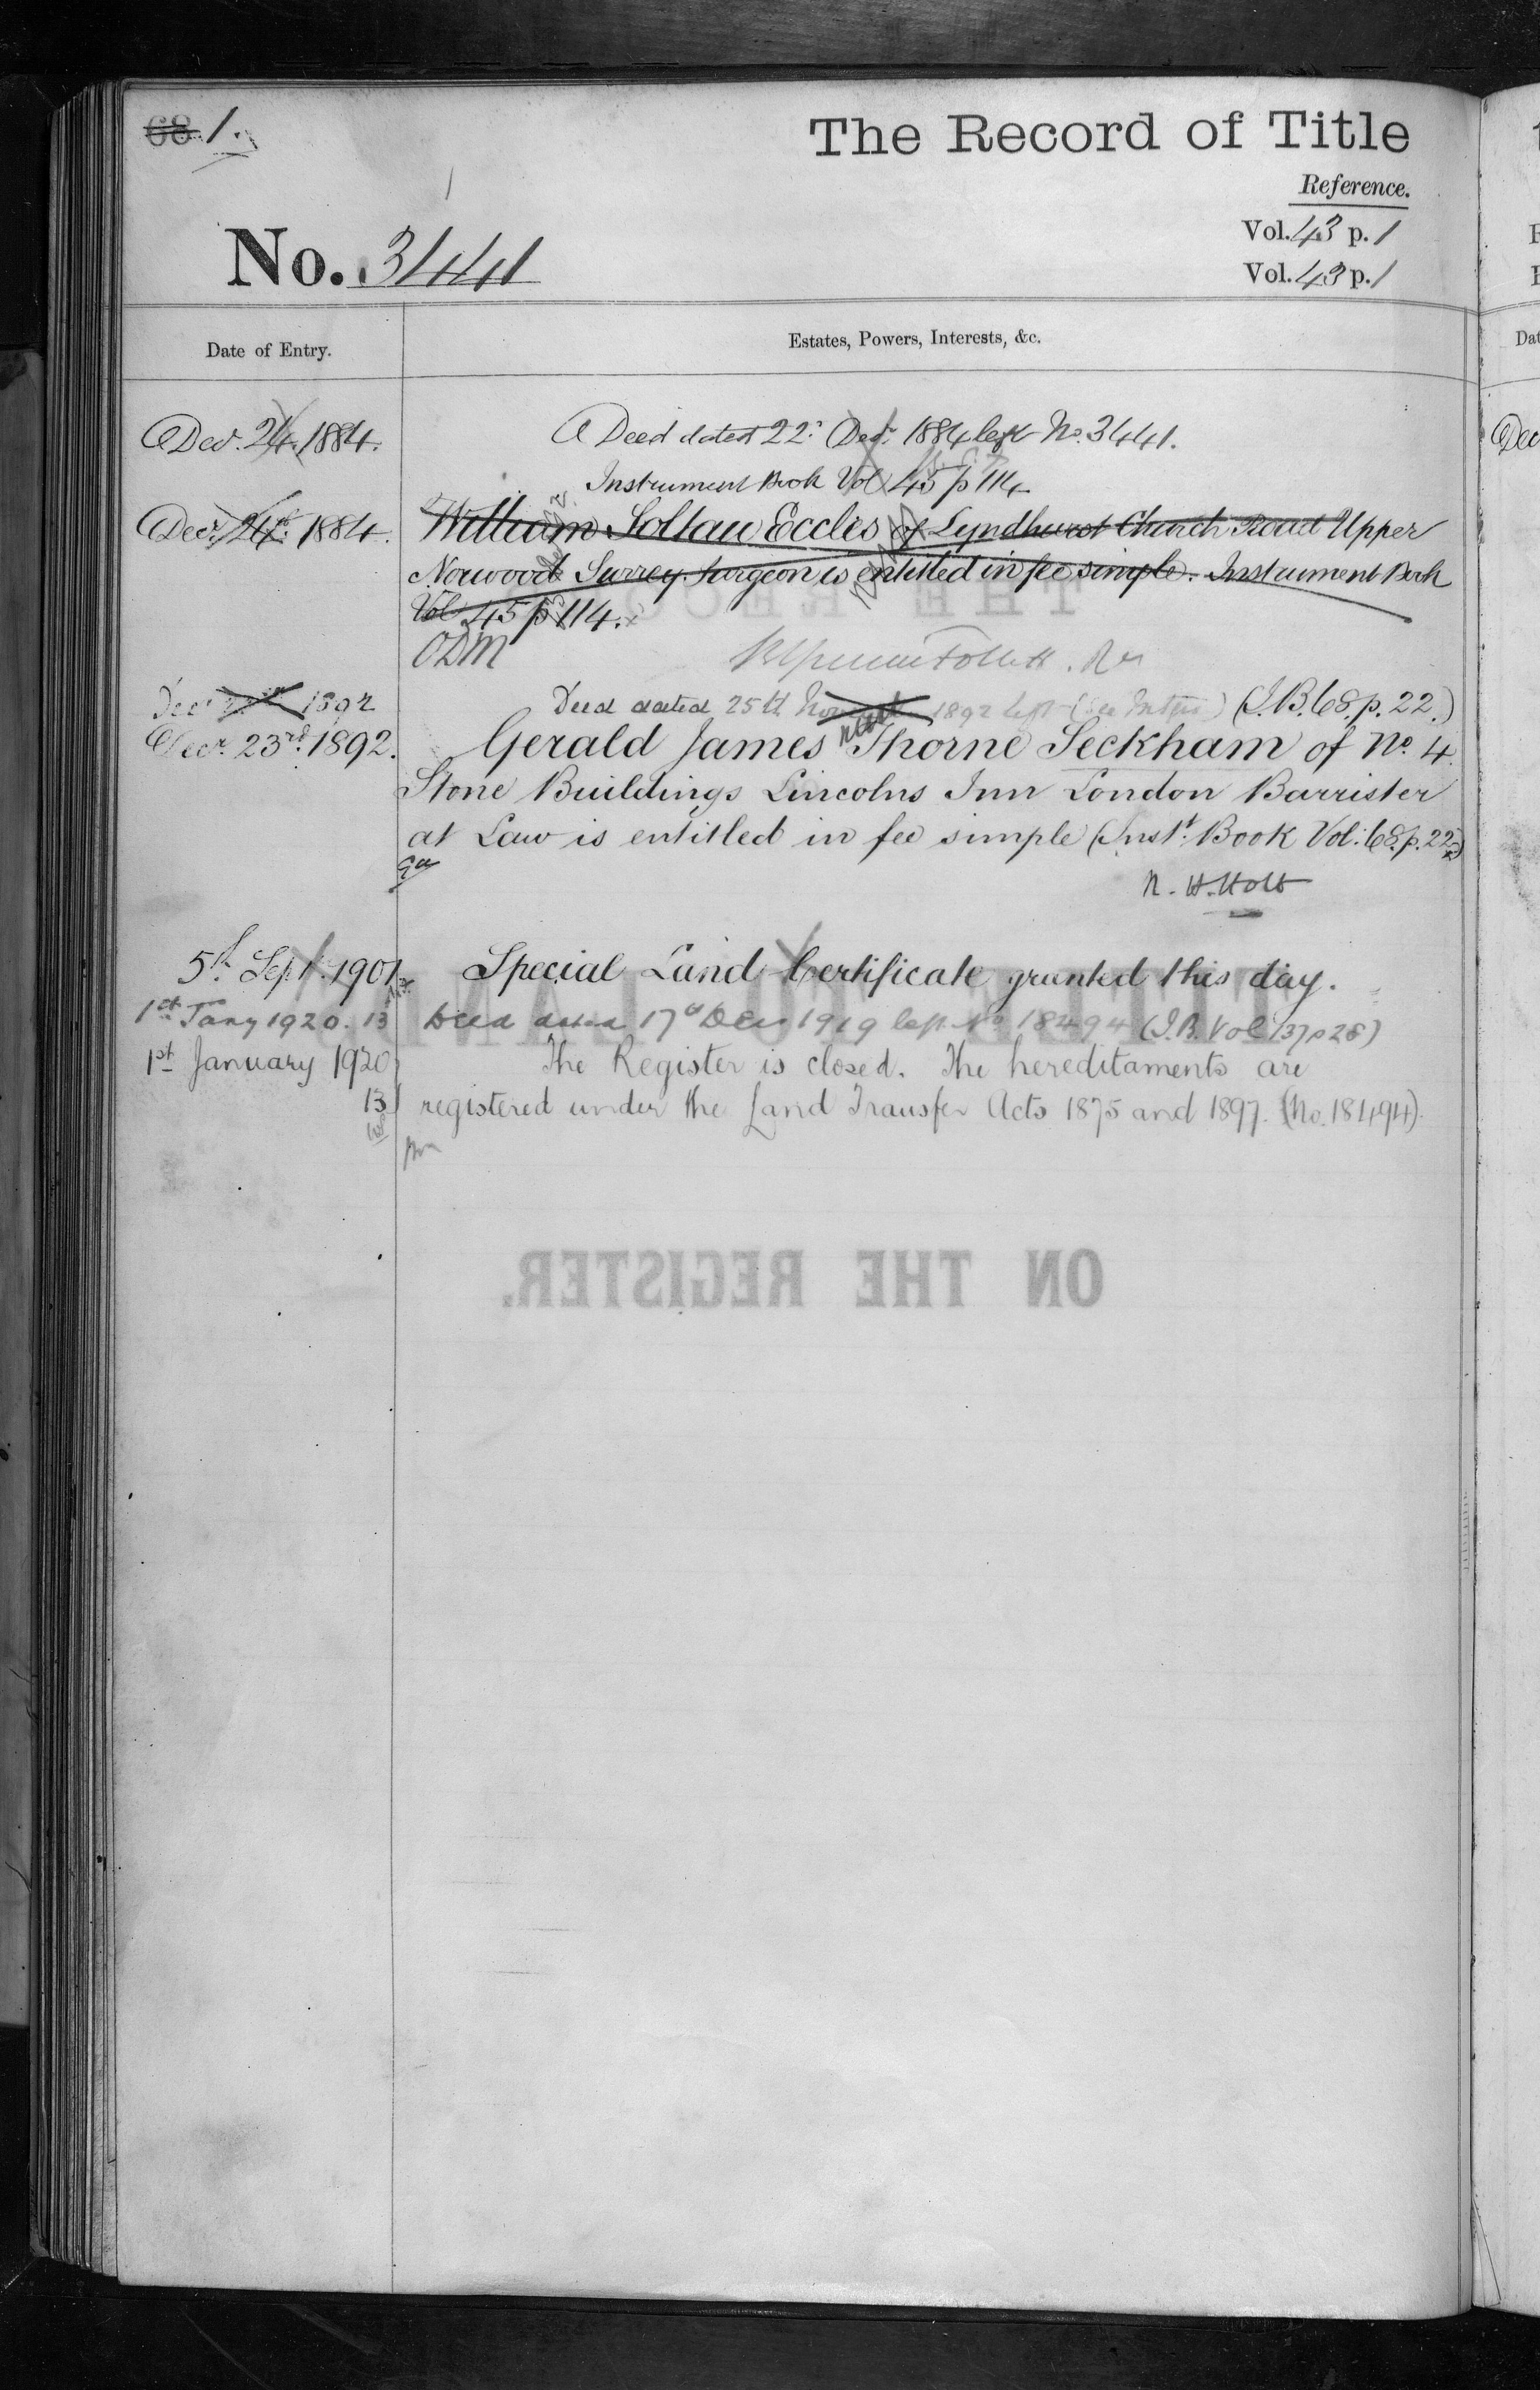 68 1.
The Record of Title
Reference.
No. 3441
Vol. 43 p. 1
Vol. 43 p. 1
Date of Entry.
Estates, Powers, Interests, &c.
Decr. 24. 1884.
A Deed dated 22d. Decr. 1884 left No. 3441.
Instrument Book Vol 45 p 114
Decr. 24th. 1884.
William Soltau Eccles of Lyndhurst Church Road Upper
Norwood Surrey Surgeon is entitled in fee simple. Instrument Book
Vol 45 p 114.
ODM
Decr 1892
Deed dated 25th 1892 left (I.B. 68. p. 22.)
Decr. 23rd. 1892.
Gerald James Thorne Seckham of No. 4
Stone Buildings Lincolns Inn London Barrister
at Law is entitled in fee simple (Inst. Book Vol: 68. p. 22)
N. H. Holt
5th Sept. 1901
Special Land Certificate granted this day.
1st Jany 1920. 13
Deed dated 17th Decr 1919 left No 18494 (I.B. Vol 137 p 28)
1st January 1920
The Register is closed. The hereditaments are
13
registered under the Land Transfer Acts 1875 and 1897. (No. 18494).
THE REC
TITLE TO LAND
ON THE REGISTER.
Dat
Dec